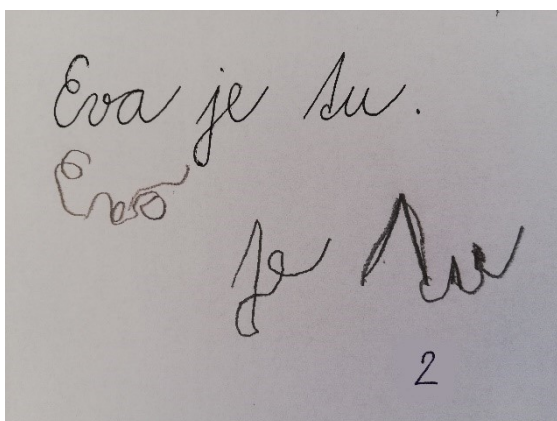 Eva je tu.
Eva
je tu
2